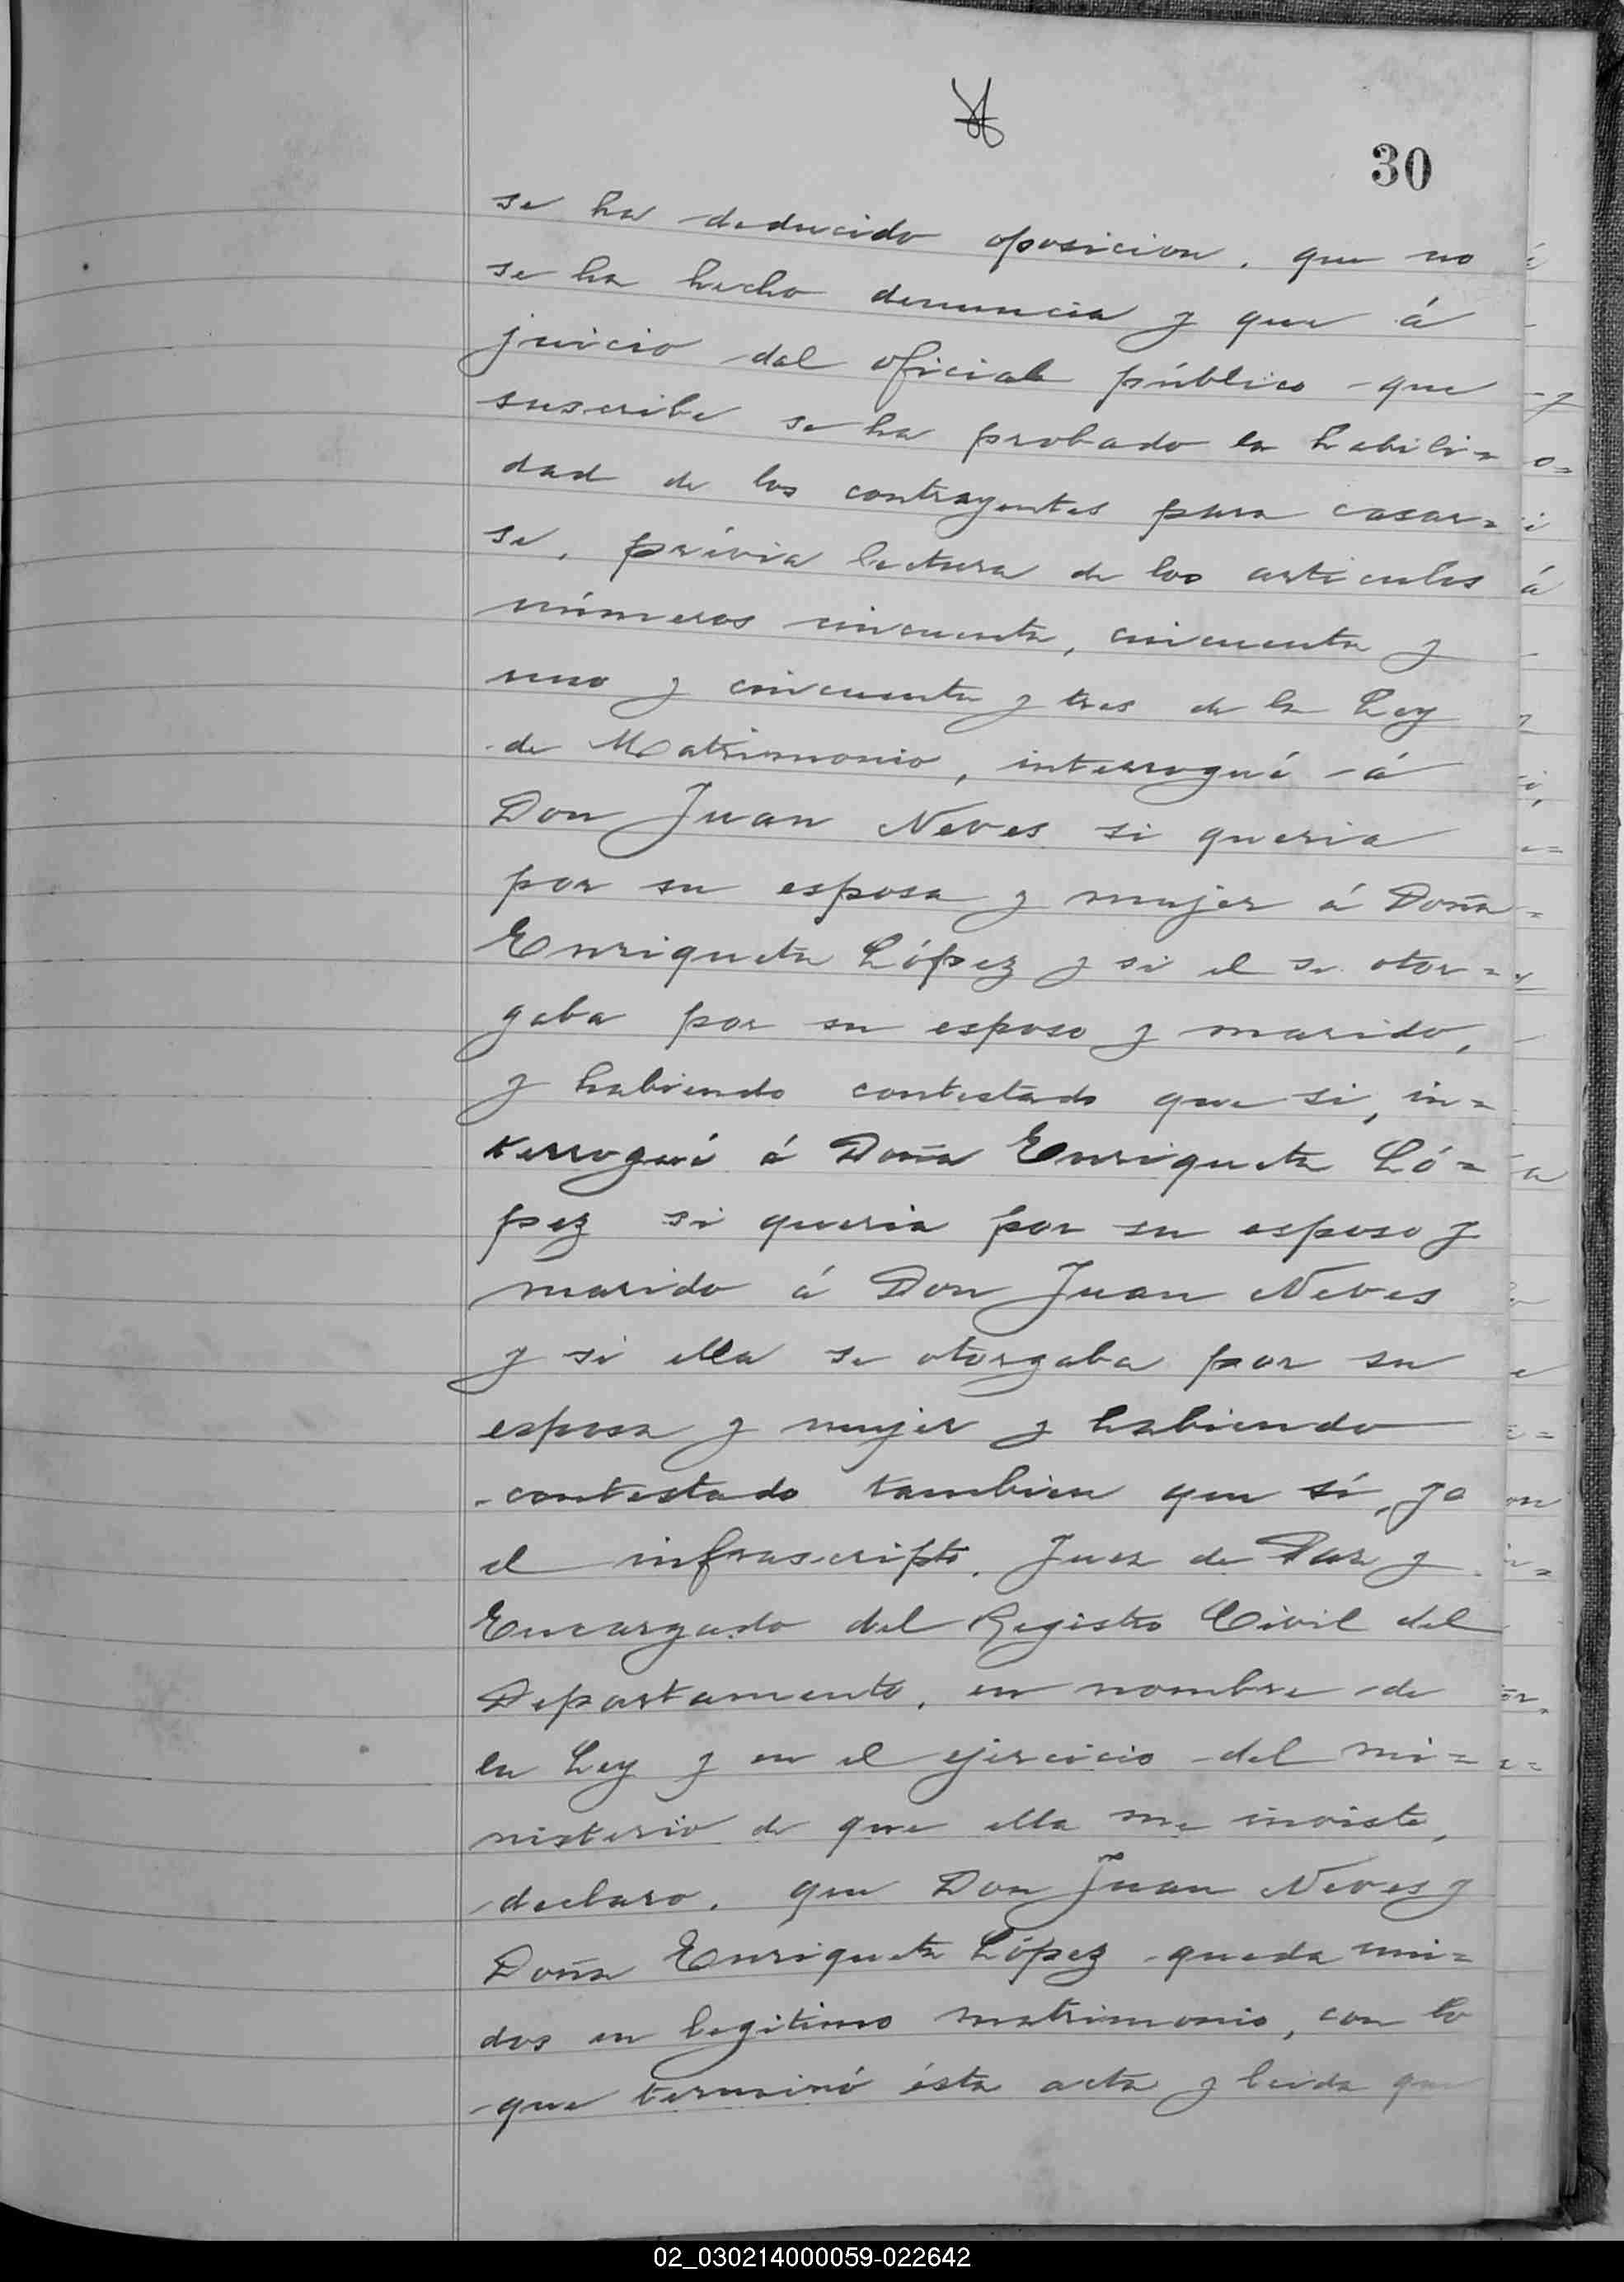 30
se ha deducido oposicion, que no
se ha hecho denuncia y que á
juicio del oficial público que
suscribe se ha probado la habili=
dad de los contrayentes para casar=
se, prévia lectura de los articulos
números cincuenta, cincuenta y
uno y cincuenta y tres de la Ley
de Matrimonio, interrogué á
Don Juan Neves si queria
por su esposa y mujer á Doña
Enriqueta López y si el se otor=
gaba por su esposo y marido,
y habiendo contestado que si, in=
terrogué á Doña Enriqueta Ló=
pez si queria por su esposo y
marido á Don Juan Neves
y si ella se otorgaba por su
esposa y mujer y habiendo
contestado tambien que sí, yo
el infrascripto, Juez de Paz y
Encargado del Registro Civil del
Departamento, en nombre de
la Ley y en el ejercicio del mi=
nisterio de que ella me inviste,
declaro, que Don Juan Neves y
Doña Enriqueta López queda uni=
dos en legitimo matrimonio, con lo
que terminó ésta acta y leida que
02_030214000059-022642